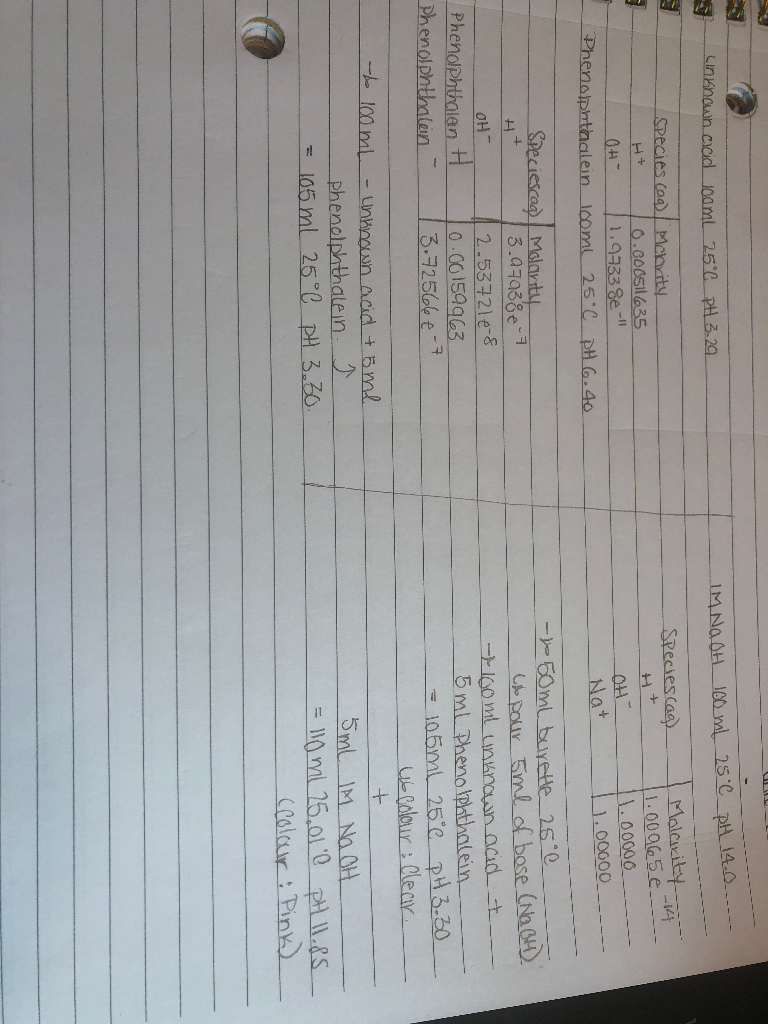 unknown acid 100ml 25°C pH 3.29
Species (aq) | Molarity
H+ | 0.000511635
OH- | 1.97338e-11
Phenolphthalein 100ml 25°C pH 6.40
Species(aq) | Molarity
H+ | 3.97938e-7
OH- | 2.53721e-8
phenolphthalein H | 0.00159963
phenolphthalein - | 3.72566e-7
→ 100ml - unknown acid + 5ml
phenolphthalein. ↑
= 105ml 25°C pH 3.30.
1M NaOH 100ml 25°C pH 14.0
Species(aq) | Molarity
H+ | 1.00965e-14
OH- | 1.00000
Na+ | 1.00000
→ 50ml burette 25°C
↳ pour 5ml of base (NaOH)
→ 100ml unknown acid +
5ml phenolphthalein
= 105ml 25°C pH 3.30
↳ Colour : Clear.
+
5ml 1M NaOH
= 110ml 25.01°C pH 11.85
(Colour : Pink)